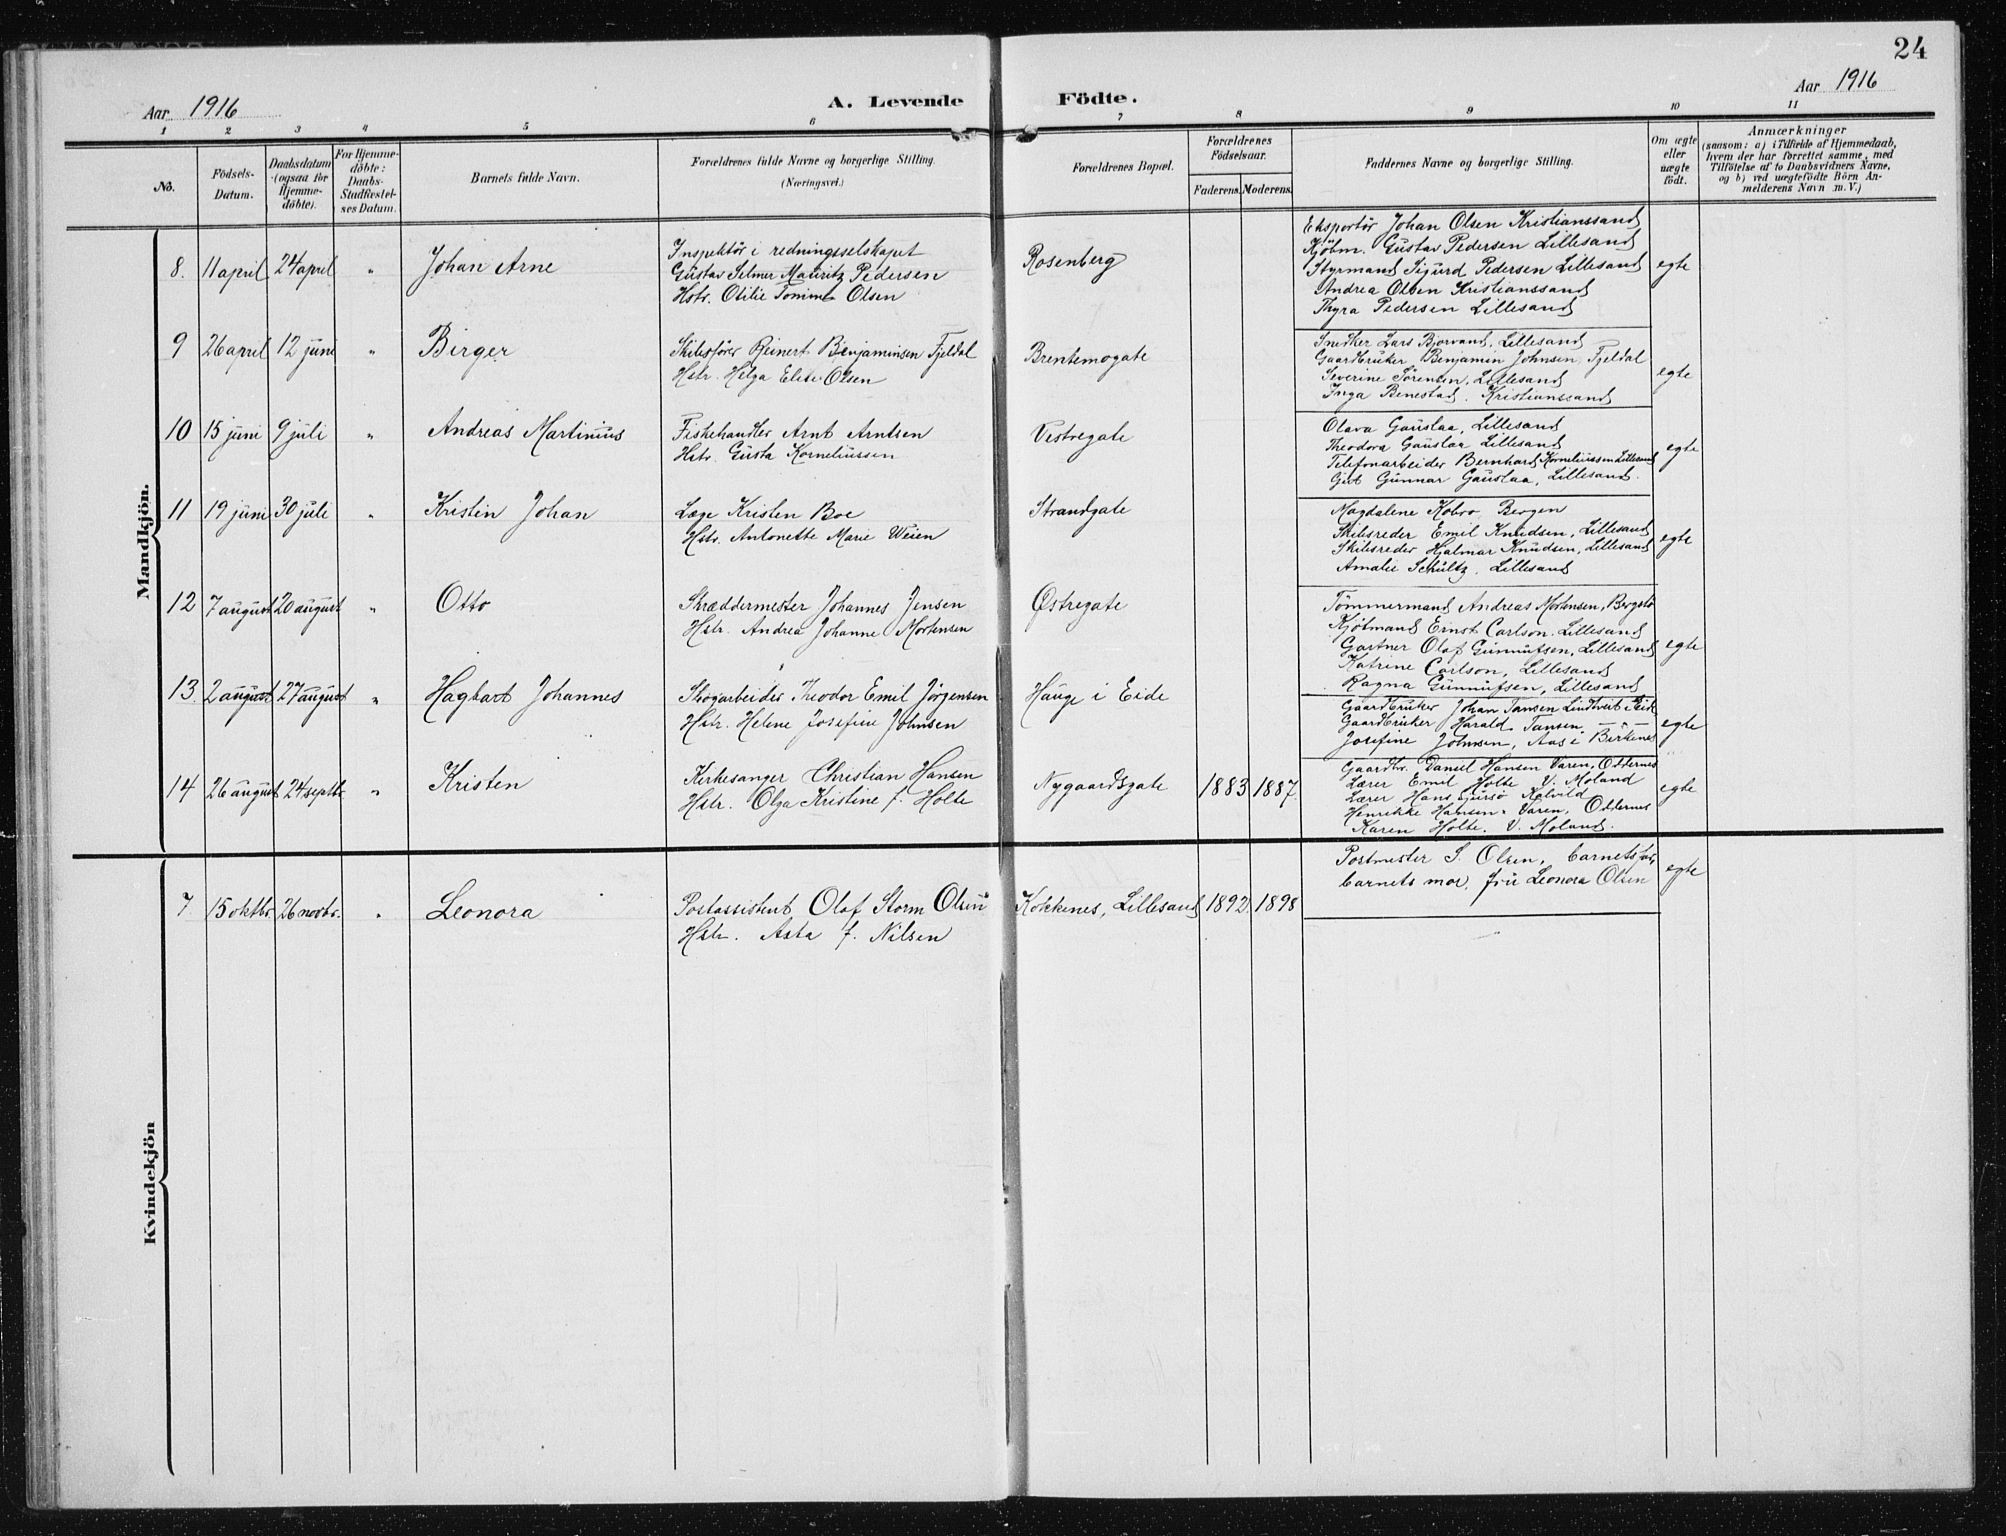 24
Aar 1916
A. Levende Födte.
Aar 1916
1 2 3 4 5 6 7 8 9 10 11
No.
Födsels-
Datum.
Daabsdatum
(ogsaa for
Hjemme-
döbte).
For Hjemme-
döbte:
Daabs-
Stadfæstel-
ses Datum.
Barnets fulde Navn.
Forældrenes fulde Navne og borgerlige Stilling.
(Næringsvei.)
Forældrenes Bopæl.
Forældrenes
Födselsaar.
Faderens. Moderens.
Faddernes Navne og borgerlige Stilling.
Om ægte
eller
uægte
födt.
Anmærkninger
(saasom: a) i Tilfælde af Hjemmedaab,
hvem der har forrettet samme, med
Tilföielse af to Daabsvidners Navne,
og b) ved uægtefödte Börn An-
melderens Navn m. V.)
Mandkjön.
8. 11 april 24 april " Johan Arne
Inspektör i redningsselskapet
Gustav Selmer Mauritz Pedersen
Hstr. Otilie Olsen
Rosenberg
Eksportör Johan Olsen Kristianssand
Kjöbm. Gustav Pedersen Lillesand
Styrmand Sigurd Pedersen Lillesand
Andrea Olsen Kristianssand
Thyra Pedersen Lillesand
egte
9 26 april 12 juni " Birger
Skibsförer Reinert Benjaminsen Fjeldal
Hstr. Helga Elise Olsen
Brentemogate
Snedker Lars Bjorvand, Lillesand
Gaardbruker Benjamin Johnsen, Fjeldal
Severine Sörensen, Lillesand
Inga Benestad. Kristianssand
egte
10 15 juni 9 juli " Andreas Martinius
Fiskehandler Arnt Arntsen
Hstr. Gusta Korneliussen
Vestregate
Olava Gauslaa, Lillesand
Theodora Gauslaa Lillesand
Telefonarbeider Bernhard Korneliussen Lillesand
Gut Gunnar Gauslaa, Lillesand.
egte
11 19 juni 30 juli " Kristen Johan
Læge Kristen Boe
Hstr. Antonette Marie Weien
Strandgate
Magdalene Kobro Bergen
Skibsreder Emil Knudsen, Lillesand
Skibsreder Hjalmar Knudsen, Lillesand
Amalie Schultz. Lillesand
egte
12 7 august 20 august " Otto
Skræddermester Johannes Jensen
Hstr. Andrea Johanne Mortensen
Østregate
Tömmermand Andreas Mortensen, Bergstö
Kjötmand Ernst Carlson. Lillesand
Gartner Olaf Gunnufsen, Lillesand
Katrine Carlson, Lillesand
Ragna Gunnufsen, Lillesand
egte
13. 2 august 27 august " Hagbart Johannes
Skogarbeider Theodor Emil Jörgensen
Hstr. Helene Josefine Johnsen
Hauge i Eide
Gaardbruker Johan Tansen Lindtveit i Eide
Gaardbruker Harald Tansen — " —
Josefine Johnsen, Aas i Birkenes
egte
14 26 august 24 septbr. " Kristen
Kirkesanger Christian Hansen
Hstr. Olga Kristine f. Holte
Nygaardsgate 1883 1887.
Gaardbr. Daniel Hansen Varen, Oddernes
Lærer Emil Holte V. Moland
Lærer Hans Kalvild
Henrikke Hansen. Varen, Oddernes
Karen Holte. V. Moland.
egte
Kvindekjön
7 15 oktbr. 26 novbr. " Leonora
Postassistent Olaf Storm Olsen
Hstr. Asta f. Nilsen
Kokkenes, Lillesand 1892. 1898
Postmester S. Olsen, barnets far,
barnets mor, fru Leonora Olsen
egte